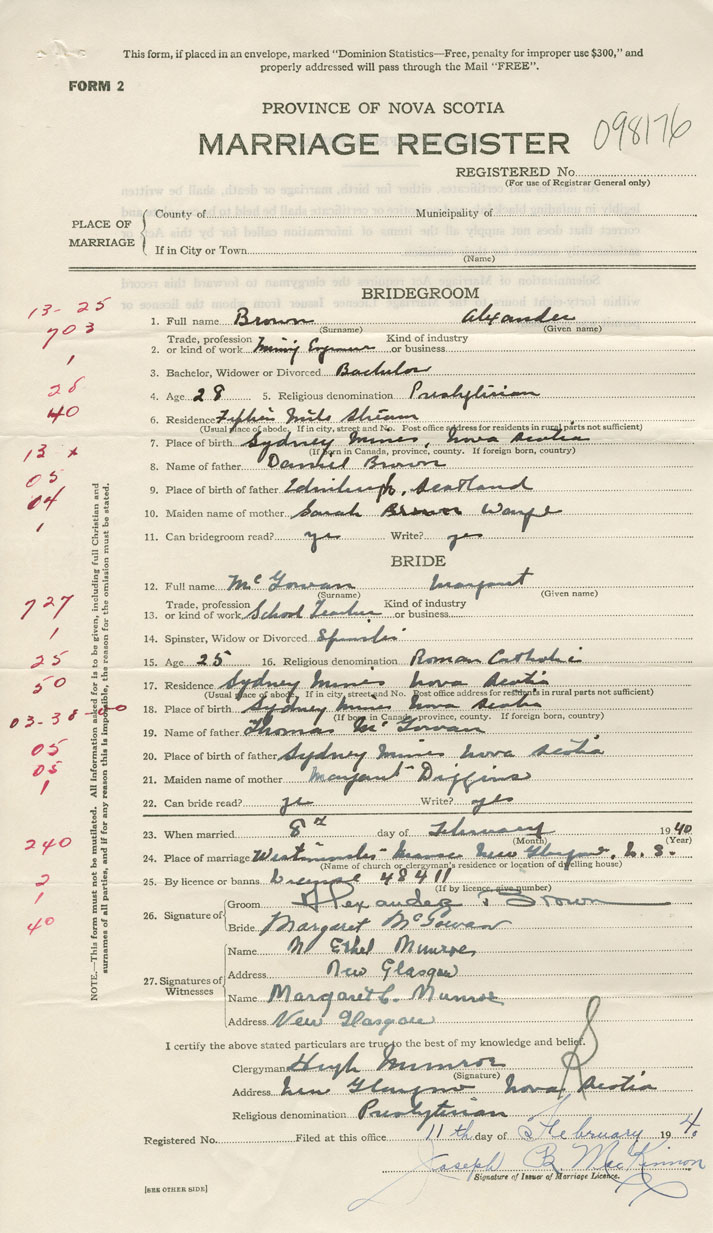 This form, if placed in an envelope, marked "Dominion Statistics—Free, penalty for improper use $300," and
properly addressed will pass through the Mail "FREE".
FORM 2
PROVINCE OF NOVA SCOTIA
MARRIAGE REGISTER 098176
REGISTERED No.
(For use of Registrar General only)
PLACE OF MARRIAGE
County of Municipality of
If in City or Town
(Name)
BRIDEGROOM
13-25
1. Full name Brown Alexander
(Surname) (Given name)
703
Trade, profession Kind of industry
2. or kind of work Mining Engineer or business
1
3. Bachelor, Widower or Divorced Bachelor
28
4. Age 28 5. Religious denomination Presbyterian
40
6. Residence Mile Stream
(Usual place of abode. If in city, street and No. Post office address for residents in rural parts not sufficient)
7. Place of birth Sydney Mines, Nova Scotia
13 x
(If born in Canada, province, county. If foreign born, country)
8. Name of father Daniel Brown
05
9. Place of birth of father Edinburgh, Scotland
04
10. Maiden name of mother Sarah Brown
1
11. Can bridegroom read? yes Write? yes
BRIDE
12. Full name McGowan Margaret
(Surname) (Given name)
727
Trade, profession Kind of industry
13. or kind of work School Teacher or business
1
14. Spinster, Widow or Divorced Spinster
25
15. Age 25 16. Religious denomination Roman Catholic
50
17. Residence Sydney Mines Nova Scotia
(Usual place of abode. If in city, street and No. Post office address for residents in rural parts not sufficient)
18. Place of birth Sydney Mines Nova Scotia
03-38-00
(If born in Canada, province, county. If foreign born, country)
19. Name of father Thomas McGowan
05
20. Place of birth of father Sydney Mines Nova Scotia
05
21. Maiden name of mother Margaret Diggins
1
22. Can bride read? ye Write? yes
23. When married 8th day of February 1940
(Month) (Year)
240
24. Place of marriage Westminster Manse New Glasgow, N. S.
(Name of church or clergyman's residence or location of dwelling house)
2
25. By licence or banns License 48411
(If by licence, give number)
1
26. Signature of
Groom Alexander Brown
40
Bride Margaret McGowan
27. Signatures of Witnesses
Name N Ethel Munroe
Address New Glasgow
Name Margaret C. Munroe
Address New Glasgow
NOTE.—This form must not be mutilated. All information asked for is to be given, including full Christian and
surnames of all parties, and if for any reason this is impossible, the reason for the omission must be stated.
I certify the above stated particulars are true to the best of my knowledge and belief.
Clergyman Hugh Munroe
(Signature)
Address New Glasgow Nova Scotia
Religious denomination Presbyterian
Registered No. Filed at this office 11th day of February 194.
Joseph B. MacKinnon
Signature of Issuer of Marriage Licence.
[SEE OTHER SIDE]